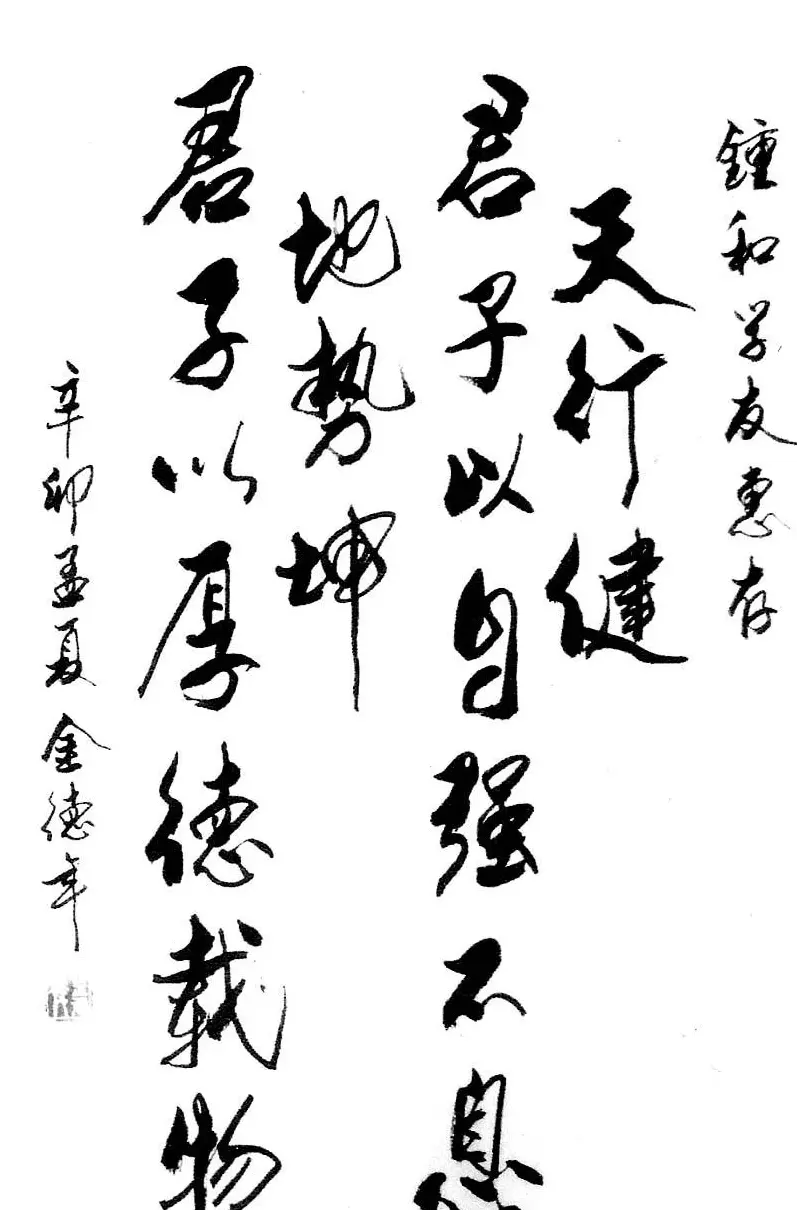 鍾和学友惠存
天行健
君子以自强不息
地势坤
君子以厚德载物
辛卯孟夏金德年